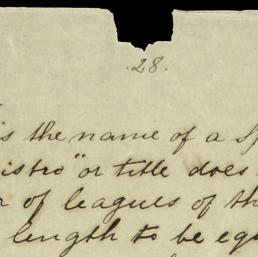 .28.
is the name of a Sp
istro" or title does
of leagues of th
length to be equ